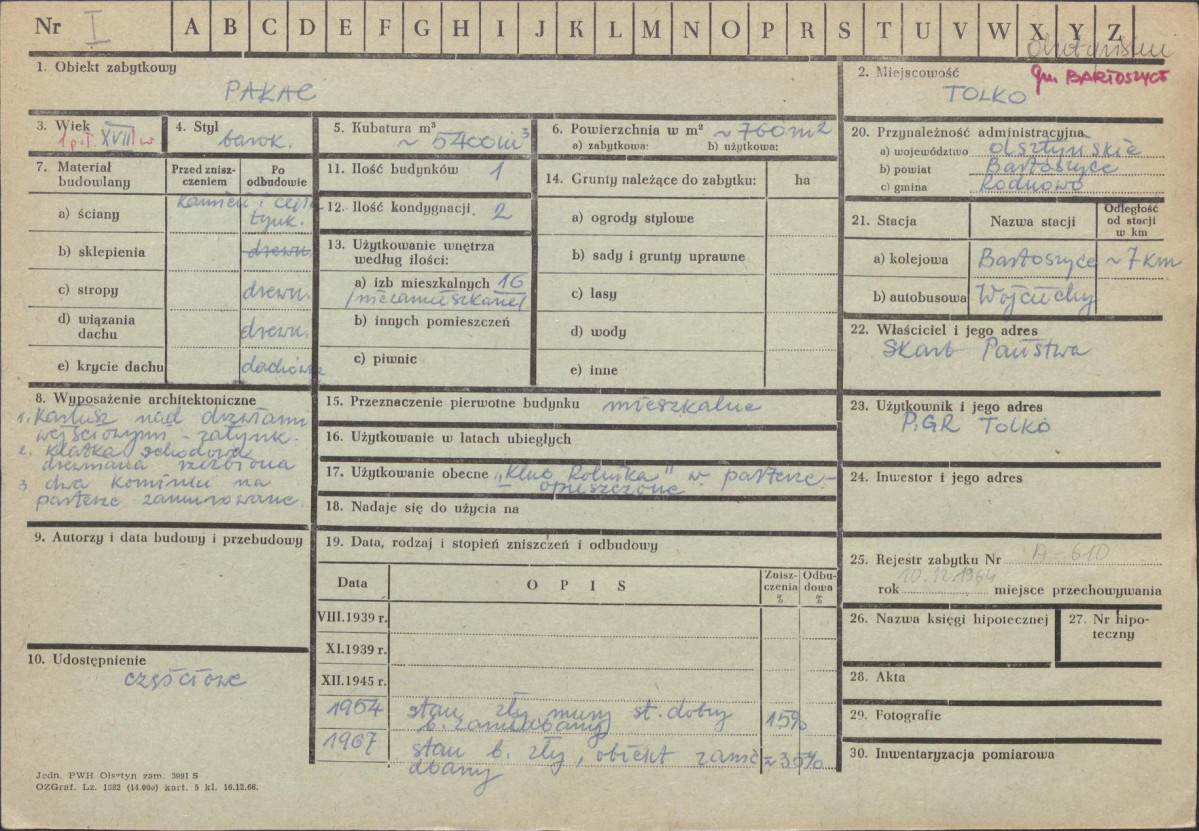 Nr I A B C D E F G H I J K L M N O P R S T U V W X Y Z
1. Obiekt zabytkowy
PAŁAC
2. Miejscowość
gm. BARTOSZYCE
TOLKO
3. Wiek
1 poł. XVIII w
4. Styl
barok.
5. Kubatura m³
~ 5400 m³
6. Powierzchnia w m² ~ 760 m²
a) zabytkowa: b) użytkowa:
7. Materiał budowlany
Przed zniszczeniem
Po odbudowie
a) ściany kamień i cegła tynk.
b) sklepienia drewn.
c) stropy drewn.
d) wiązania dachu drewn.
e) krycie dachu dachówka
8. Wyposażenie architektoniczne
1. Kartusz nad drzwiami
wejściowymi - zatynk.
2. klatka schodowa
drewniana rzeźbiona
3. dwa kominki na
parterze zamurowane.
9. Autorzy i data budowy i przebudowy
10. Udostępnienie
częściowe
11. Ilość budynków 1
12. Ilość kondygnacji 2
13. Użytkowanie wnętrza
według ilości:
a) izb mieszkalnych 16
/niezamieszkane/
b) innych pomieszczeń
c) piwnic
14. Grunty należące do zabytku: ha
a) ogrody stylowe
b) sady i grunty uprawne
c) lasy
d) wody
e) inne
15. Przeznaczenie pierwotne budynku mieszkalne
16. Użytkowanie w latach ubiegłych
17. Użytkowanie obecne „Klub Rolnika" w parterze -
opuszczone
18. Nadaje się do użycia na
19. Data, rodzaj i stopień zniszczeń i odbudowy
Data OPIS Zniszczenia % Odbudowa %
VIII.1939 r.
XI.1939 r.
XII.1945 r.
1954 stan zły mury st. dobry
b. zaniedbany 15%
1967 stan b. zły, obiekt zanie
dbany ~35%
20. Przynależność administracyjna
a) województwo olsztyńskie
b) powiat Bartoszyce
c) gmina Rodnowo
21. Stacja Nazwa stacji Odległość od stacji w km
a) kolejowa Bartoszyce ~ 7 km
b) autobusowa Wojciechy
22. Właściciel i jego adres
Skarb Państwa
23. Użytkownik i jego adres
PGR Tolko
24. Inwestor i jego adres
25. Rejestr zabytku Nr A-610
rok 10.12.1964 miejsce przechowywania
26. Nazwa księgi hipotecznej
27. Nr hipoteczny
28. Akta
29. Fotografie
30. Inwentaryzacja pomiarowa
Jedn. PWH Olsztyn zam. 3991 S
OZGraf. Lz. 1382 (14.000) kart. 5 kl. 16.12.66.